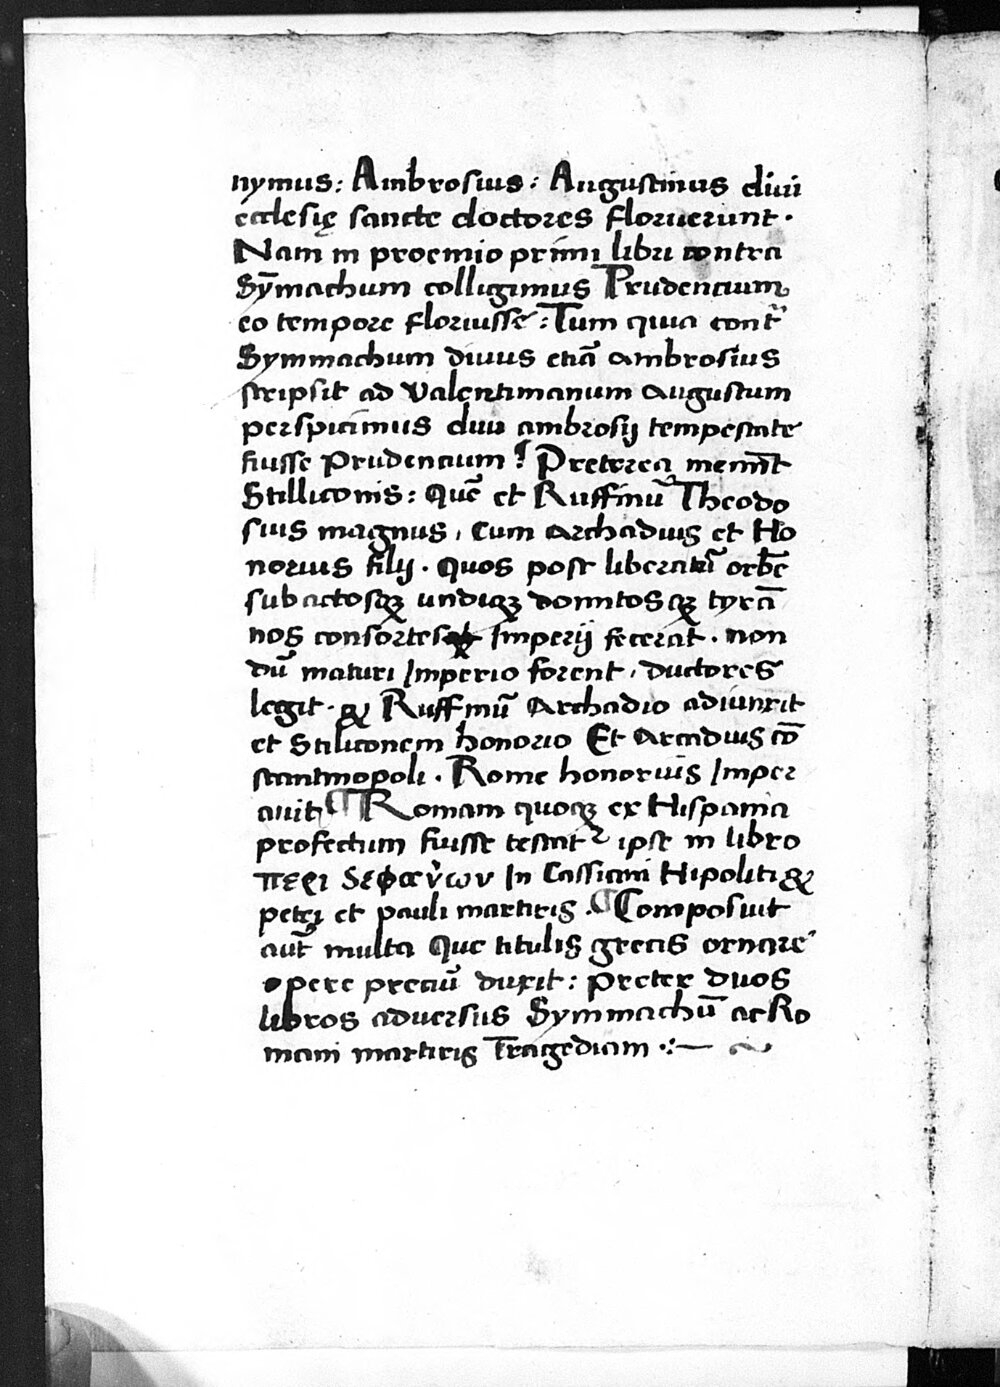 nymus: Ambrosius: Augustinus diui
ecclesię sancte doctores floruerunt.
Nam in proemio primi libri contra
Sȳmachum colligimus Prudencium
eo tempore floruisse: Tum quia cont᷑
Symmachum diuus etiā ambrosius
scripsit ad Valentinianum Augustum
perspicimus diui ambrosij tempestate
fuisse Prudencium: Preterea memīt
Stilliconis: Quē et Ruffinū Theodo
sius magnus, Cum Archadius et Ho
norius filij. Quos post liberatū orbē
subactosqꝫ undiqꝫ domitosqꝫ tyrā
nos consortes Imperij fecerat. non
dū maturi Imperio forent, ductores
legit. & Ruffinū Archadio adiunxit
et Stiliconem honorio Et Arcadius cō
stantinopoli. Rome honorius Imper
auit, ¶ Romam quoqꝫ ex Hispania
profectum fuisse testat᷑ ipse in libro
περι Sεφανων In Cassiani Hipoliti &
petri et pauli martiris. ¶ Composuit
aut̄ multa Que titulis grecis ornare
opere preciū duxit: preter duos
libros aduersus Symmachū ac Ro
mani martiris Tragediam ∴— ~